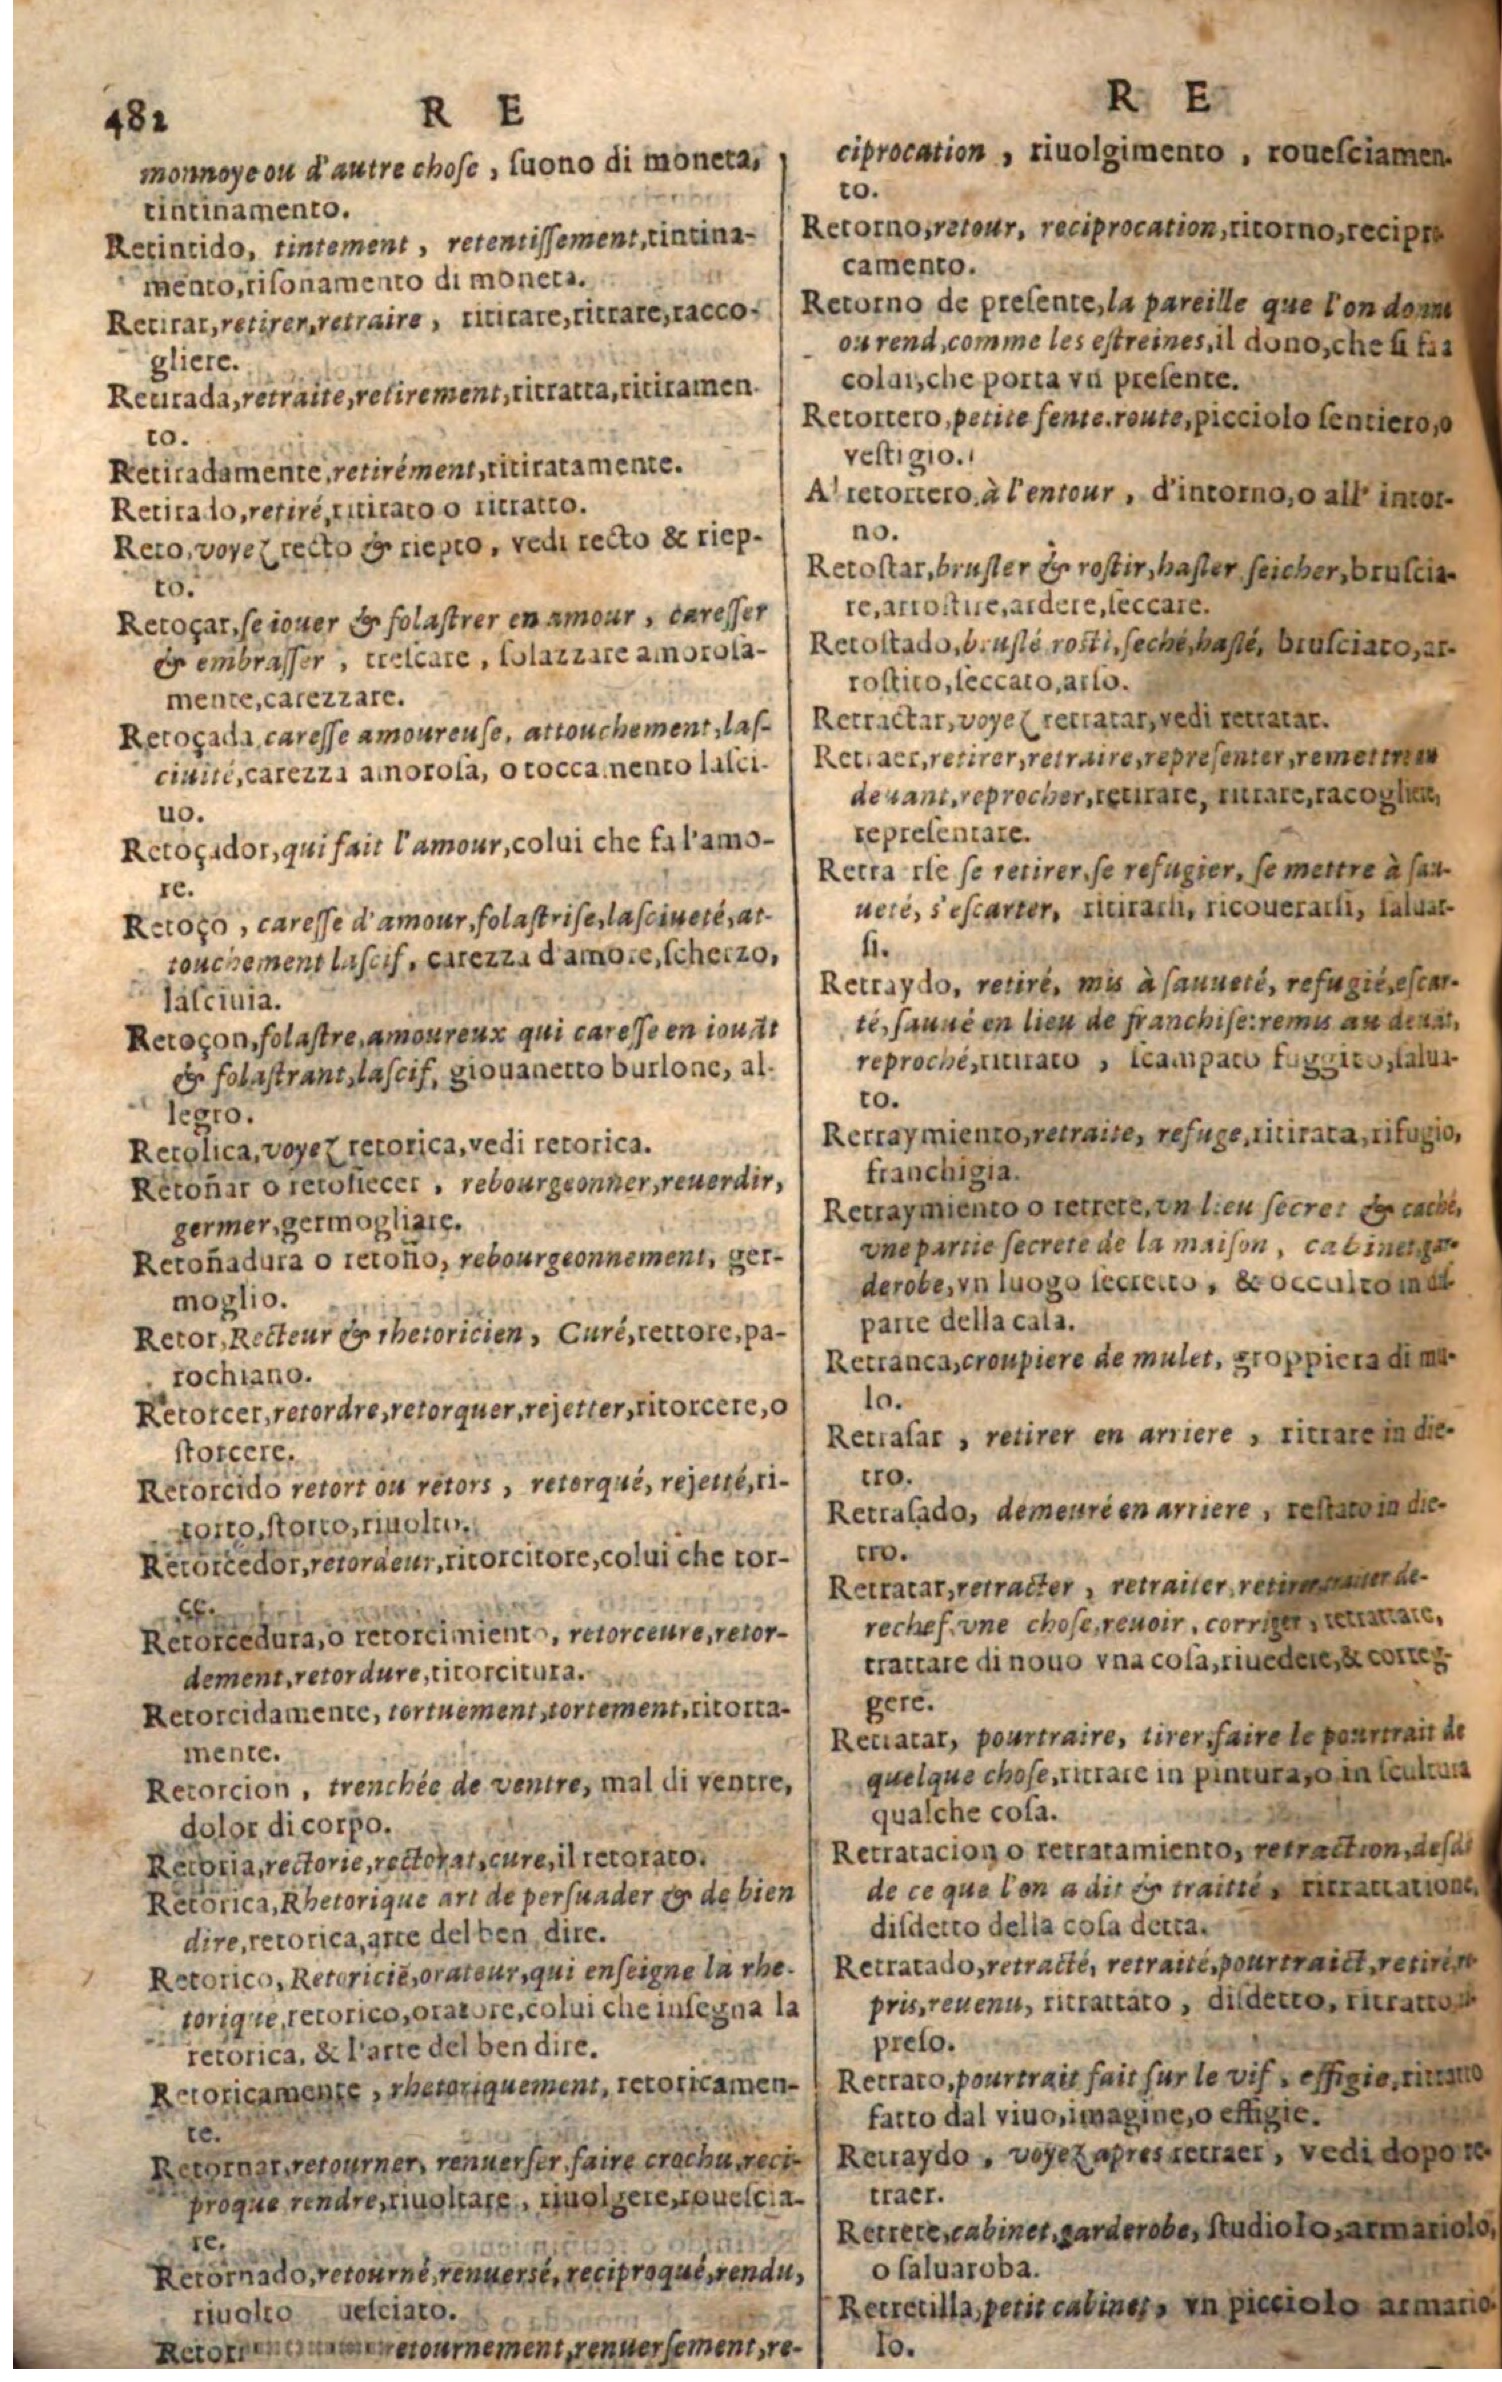 482 R E
monnoye ou d'autre chose, ſuono di moneta,
tintinamento.
Retintido, tintement, retentiſſement, tintina-
mento, riſonamento di moneta.
Retirar, retirer, retraire, ritirare, ritrare, racco-
gliere.
Retirada, retraite, retirement, ritratta, ritiramen-
to.
Retiradamente, retirément, ritiratamente.
Retirado, retiré, ritirato o ritratto.
Reto, voyez recto & riepto, vedi recto & riep-
to.
Retoçar, se iouer & folaſtrer en amour, careſſer
& embraſſer, treſcare, ſolazzare amoroſa-
mente, carezzare.
Retoçada, careſſe amoureuſe, attouchement, laſ-
ciuité, carezza amoroſa, o toccamento laſci-
uo.
Retoçador, qui fait l'amour, colui che fa l'amo-
re.
Retoço, careſſe d'amour, folaſtriſe, laſciueté, at-
touchement laſcif, carezza d'amore, ſcherzo,
laſciuia.
Retoçon, folaſtre, amoureux qui careſſe en iouāt
& folaſtrant, laſcif, giouanetto burlone, al-
legro.
Retolica, voyez retorica, vedi retorica.
Retoñar o retoñecer, rebourgeonner, reuerdir,
germer, germogliare.
Retoñadura o retoño, rebourgeonnement, ger-
moglio.
Retor, Recteur & rhetoricien, Curé, rettore, pa-
rochiano.
Retorcer, retordre, retorquer, rejetter, ritorcere, o
ſtorcere.
Retorcido retort ou retors, retorqué, rejetté, ri-
torto, ſtorto, riuolto.
Retorcedor, retordeur, ritorcitore, colui che tor-
ce.
Retorcedura, o retorcimiento, retorceure, retor-
dement, retordure, ritorcitura.
Retorcidamente, tortuement, tortement, ritorta-
mente.
Retorcion, trenchée de ventre, mal di ventre,
dolor di corpo.
Retoria, rectorie, rectorat, cure, il retorato.
Retorica, Rhetorique art de perſuader & de bien
dire, retorica, arte del ben dire.
Retorico, Retoriciē, orateur, qui enſeigne la rhe-
torique, retorico, oratore, colui che inſegna la
retorica, & l'arte del ben dire.
Retoricamente, rhetoriquement, retoricamen-
te.
Retornar, retourner, renuerſer, faire crochu, reci-
proque rendre, riuoltare, riuolgere, roueſcia-
re.
Retornado, retourné, renuersé, reciproqué, rendu,
riuolto ueſciato.
Retor retournement, renuerſement, re-
R E
ciprocation, riuolgimento, roueſciamen-
to.
Retorno, retour, reciprocation, ritorno, recipro-
camento.
Retorno de preſente, la pareille que l'on donne
ou rend, comme les eſtreines, il dono, che ſi fa a
colui, che porta vn preſente.
Retortero, petite ſente, route, picciolo ſentiero, o
veſtigio.
Al retortero, à l'entour, d'intorno, o all' intor-
no.
Retoſtar, bruſler & roſtir, haſler ſeicher, bruſcia-
re, arroſtire, ardere, ſeccare.
Retoſtado, bruſlé roſti, ſeché, haſlé, bruſciato, ar-
roſtito, ſeccato, arſo.
Retractar, voyez retratar, vedi retratar.
Retraer, retirer, retraire, repreſenter, remettre au
deuant, reprocher, retirare, ritrare, racogliere,
repreſentare.
Retraerſe se retirer, ſe refugier, ſe mettre à ſau-
ueté, s'eſcarter, ritirarſi, ricouerarſi, ſaluar-
ſi.
Retraydo, retiré, mis à ſauueté, refugié, eſcar-
té, ſauué en lieu de franchiſe: remis au deuāt,
reproché, ritirato, ſcampato fuggito, ſalua-
to.
Retraymiento, retraite, refuge, ritirata, rifugio,
franchigia.
Retraymiento o retrete, vn lieu ſecret & caché,
vne partie ſecrete de la maiſon, cabinet, gar-
derobe, vn luogo ſecreto, & occulto in
parte della caſa.
Retranca, croupiere de mulet, groppiera di mu-
lo.
Retraſar, retirer en arriere, ritrare in die-
tro.
Retraſado, demeuré en arriere, reſtato in die-
tro.
Retratar, retracter, retraiter, retirer, traiter de-
rechef, vne choſe, reuoir, corriger, retrattare,
trattare di nouo vna coſa, riuedere, & correg-
gere.
Retratar, pourtraire, tirer, faire le pourtrait de
quelque choſe, ritrare in pintura, o in ſcultura
qualche coſa.
Retratacion o retratamiento, retraction, deſdit
de ce que l'on a dit & traitté, ritrattatione,
diſdetto della coſa detta.
Retratado, retracté, retraité, pourtraict, retiré, re-
pris, reuenu, ritrattato, diſdetto, ritratto
preſo.
Retrato, pourtrait fait ſur le vif, effigie, ritratto
fatto dal viuo, imagine, o effigie.
Retraydo, voyez apres retraer, vedi dopo re-
traer.
Retrete, cabinet, garderobe, ſtudiolo, armariolo,
o ſaluaroba.
Retretilla, petit cabinet, vn picciolo armario-
lo.